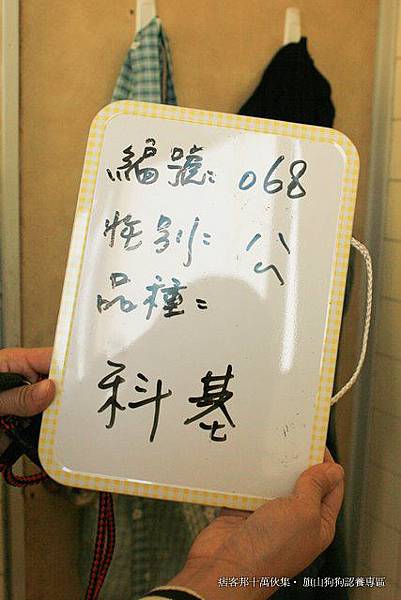 編號: 068
性別: 公
品種:
科基
痞客邦十萬伙集・旗山狗狗認養專區